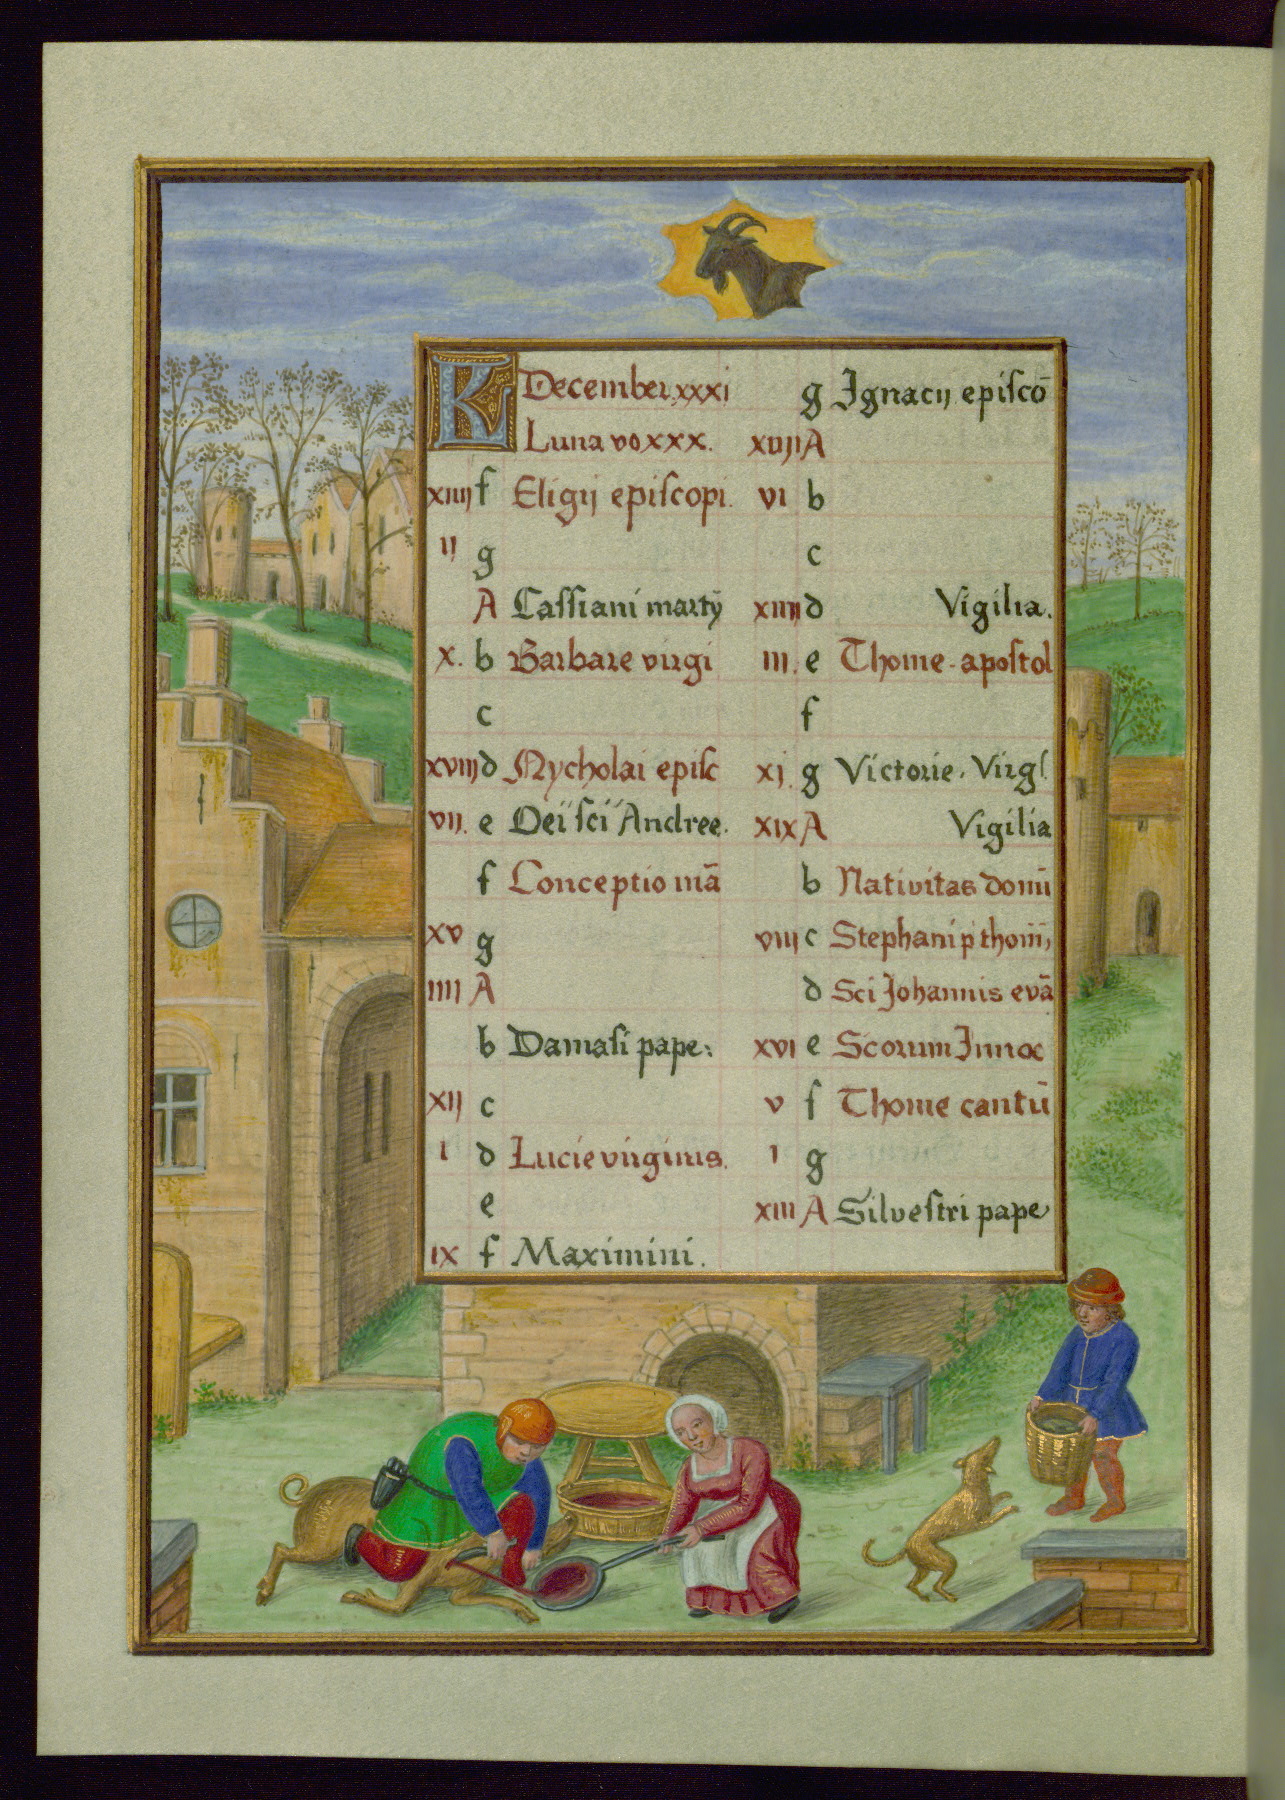 K December.xxxi
Luna vo xxx.
xiiij f Eligij episcopi.
ij g
A Cassiani marty̅
x. b Barbare virgi
c
xviij d Nycholai episc
vij. e Dei sci Andree.
f Conceptio ma̅
xv g
iiij A
b Damasi pape:
xij c
i d Lucie virginis.
e
ix f Maximini.
g Ignacij episco̅
xvij A
vi b
c
xiiij d Vigilia.
iij. e Thome. apostol
f
xi. g Victorie. Virg
xix A Vigilia
b Nativitas domi̅
viij c Stephani p thom
d Sci Johannis eva̅
xvi e Scorum Innoc
v f Thome cantu̅
i g
xiii A Silvestri pape